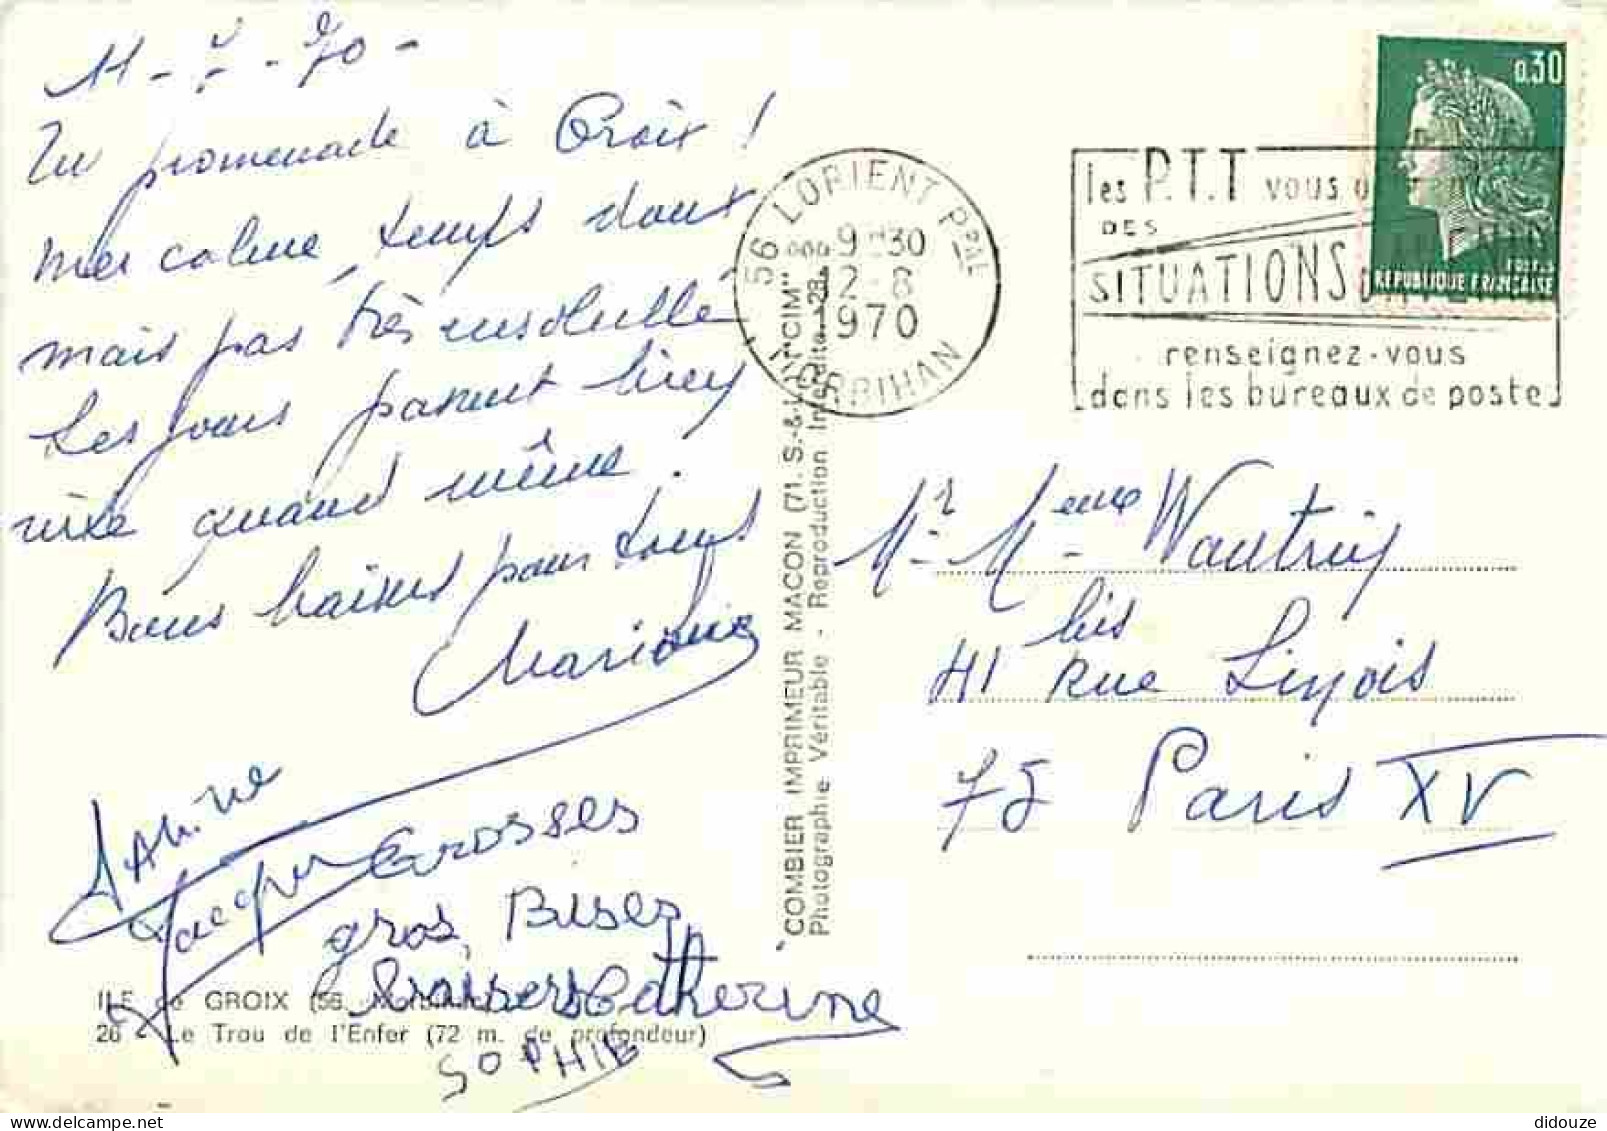 11-8-70-
En promenade à Groix !
mer calme, temps doux
mais pas très ensoleillé
Les jours passent bien
vite quand même.
Bons baisers pour tous
Jacques
Grosses
gros Bises
baisers Catherine
SOPHIE
ILE de GROIX (56. Morbihan)
26 - Le Trou de l'Enfer (72 m. de profondeur)
COMBIER IMPRIMEUR MACON (71. S.-&-L.) "CIM"
Photographie Véritable - Reproduction Interdite
56 LORIENT Pal
9H30
12-8
1970
MORBIHAN
les P.T.T vous
DES
SITUATIONS D'AVENIR
renseignez-vous
dans les bureaux de poste
0.30
POSTES
REPUBLIQUE FRANÇAISE
Mr Mme
41 bis Rue Linois
75 Paris XV
didouze